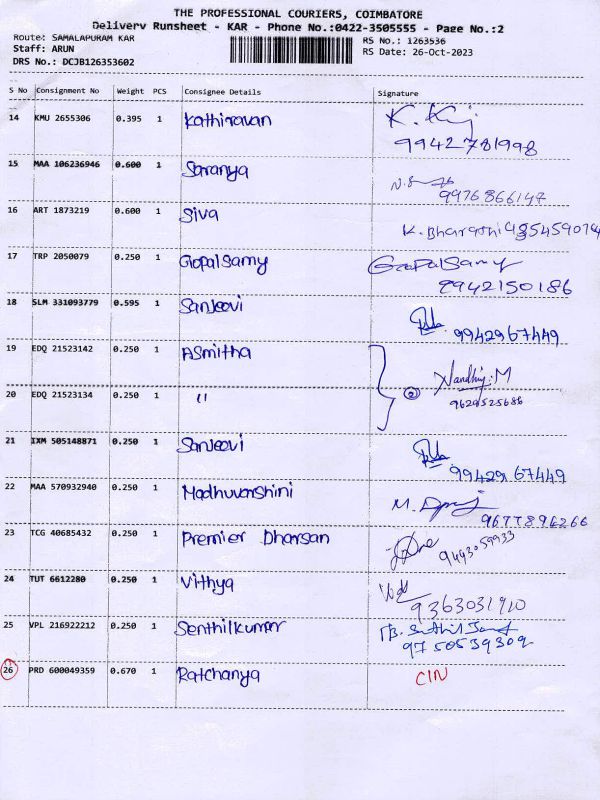 THE PROFESSIONAL COURIERS, COIMBATORE
Delivery Runsheet - KAR - Phone No.:0422-3505555 - Page No.:2
Route: SAMALAPURAM KAR RS No.: 1263536
Staff: ARUN RS Date: 26-Oct-2023
DRS No.: DCJB126353602
S No Consignment No Weight PCS Consignee Details Signature
14 KMU 2655306 0.395 1 Kathiravan K.
9942781998
15 MAA 106236946 0.600 1 Saranya
9976866147
16 ART 1873219 0.600 1 Siva K. Bharathi
17 TRP 2050079 0.250 1 GopalSamy GopalSamy
9942150186
18 SLM 331093779 0.595 1 Sanjeevi 9942967449
19 EDQ 21523142 0.250 1 ASmitha
20 EDQ 21523134 0.250 1 " 2 Nandhij.M
9629525686
21 IXM 505148871 0.250 1 Sanjeevi
9942967449
22 MAA 570932940 0.250 1 Madhuvarshini M.
9677896266
23 TCG 40685432 0.250 1 Premier Dharsan 9443059933
24 TUT 6612280 0.250 1 Vithya
9363031910
25 VPL 216922212 0.250 1 Senthilkumar
9750539309
26 PRD 600049359 0.670 1 Ratchanya CIN